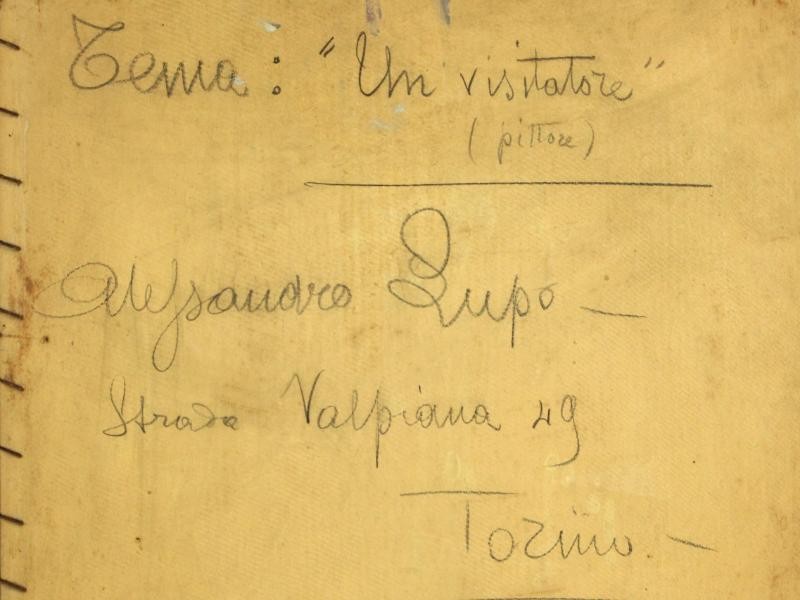 Tema: "Un visitatore"
(pittore)
Alessandro Lupo —
Strada Valpiana 49
Torino. —